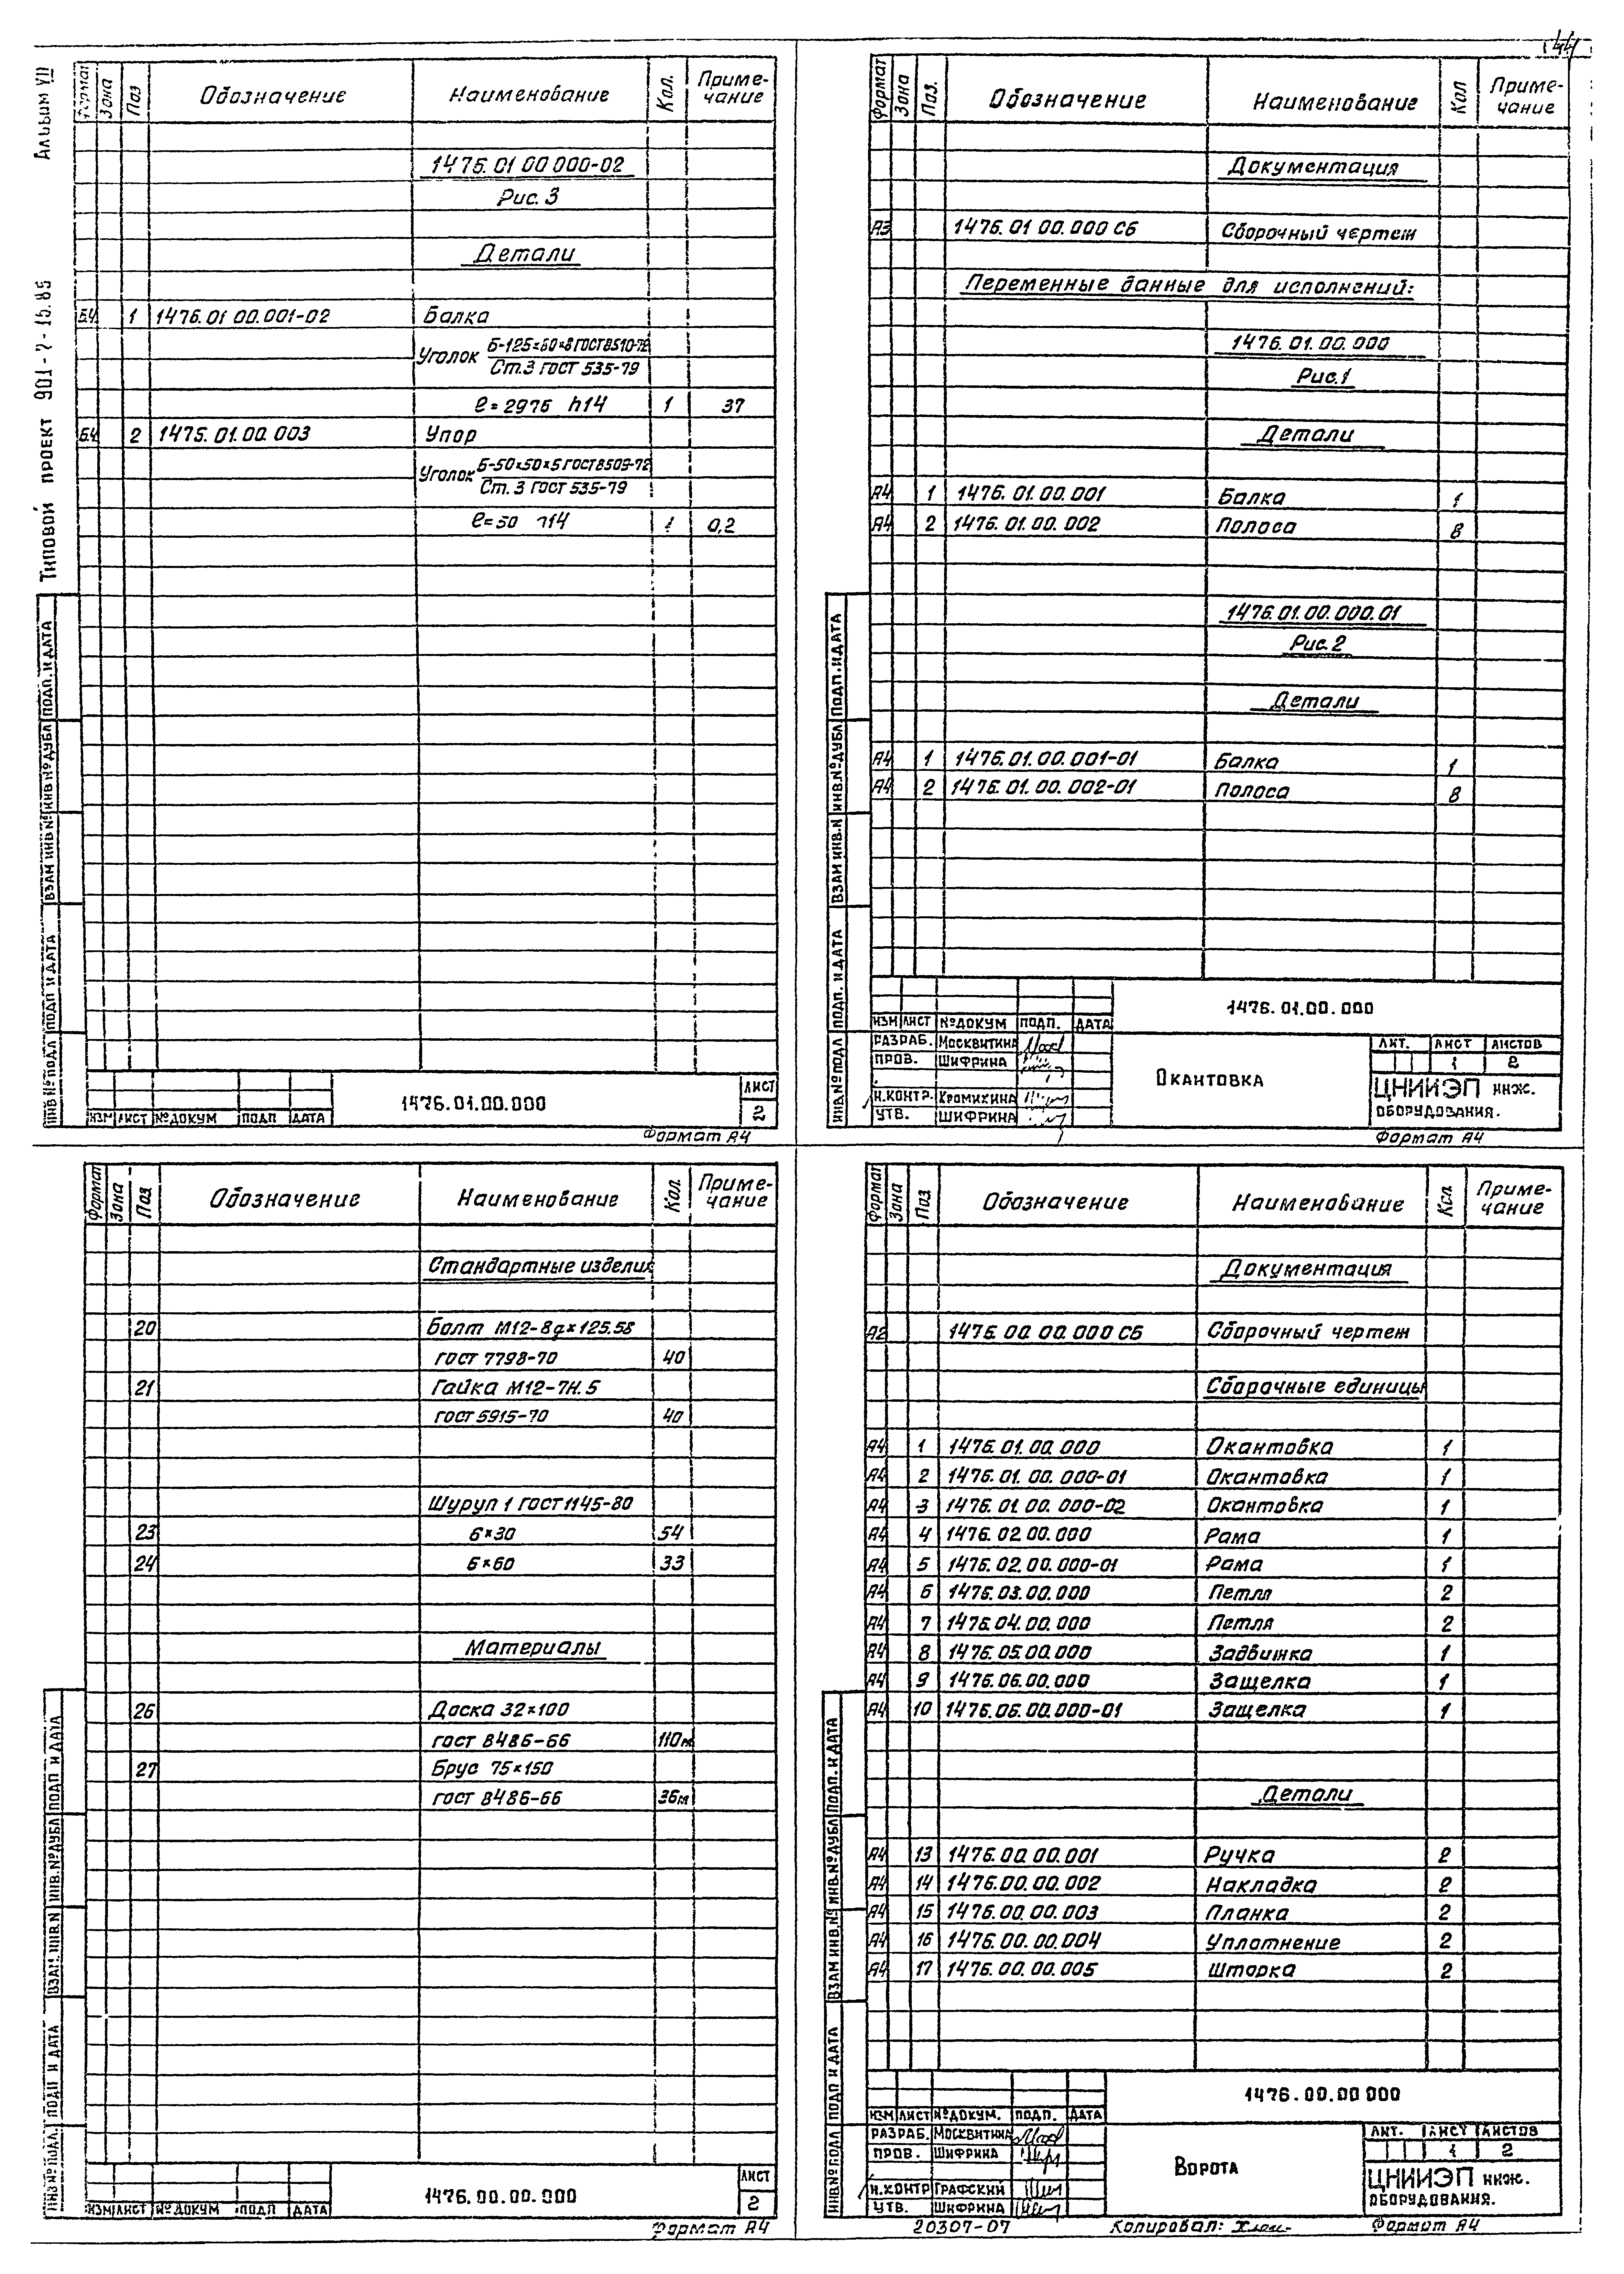 44
Альбом VII
Типовой проект 901-7-15.85
Формат Зона Поз Обозначение Наименование Кол. Приме-чание
1476.01 00 000-02
Рис. 3
Детали
Б.4. 1 1476.01 00.001-02 Балка
Уголок Б-125×80×8 ГОСТ 8510-72
Ст.3 ГОСТ 535-79
ℓ=2976 h14 1 37
Б.4 2 1475.01.00.003 Упор
Уголок Б-50×50×5 ГОСТ 8509-72
Ст. 3 ГОСТ 535-79
ℓ=50 h14 1 0,2
ИНВ № ПОДЛ ПОДП И ДАТА ВЗАМ ИНВ № ИНВ № ДУБЛ ПОДП. И ДАТА
ИЗМ ЛИСТ № ДОКУМ ПОДП ДАТА
1476.01.00.000
ЛИСТ
2
Формат А4
Формат Зона Поз. Обозначение Наименование Кол Приме-чание
Документация
А3 1476.01 00.000 СБ Сборочный чертеж
Переменные данные для исполнений:
1476.01.00.000
Рис.1
Детали
А4 1 1476.01.00.001 Балка 1
А4 2 1476.01.00.002 Полоса 8
1476.01.00.000.01
Рис.2
Детали
А4 1 1476.01.00.001-01 Балка 1
А4 2 1476.01.00.002-01 Полоса 8
ИНВ.№ ПОДЛ ПОДП. И ДАТА ВЗАМ ИНВ.N ИНВ.№ ДУБЛ ПОДП. И ДАТА
1476.01.00.000
ИЗМ ЛИСТ № ДОКУМ ПОДП. ДАТА
РАЗРАБ. МОСКВИТИНА
ПРОВ. ШИФРИНА
Н.КОНТР. ХРОМИХИНА
УТВ. ШИФРИНА
Окантовка
ЛИТ. ЛИСТ ЛИСТОВ
1 2
ЦНИИЭП инж.
ОБОРУДОВАНИЯ.
Формат А4
Формат Зона Поз Обозначение Наименование Кол. Приме-чание
Стандартные изделия
20 Болт М12-8g×125.58
ГОСТ 7798-70 40
21 Гайка М12-7Н.5
ГОСТ 5915-70 40
Шуруп 1 ГОСТ 1145-80
23 6×30 54
24 6×60 33
Материалы
26 Доска 32×100
ГОСТ 8486-66 110м
27 Брус 75×150
ГОСТ 8486-66 36м
ИНВ № ПОДЛ. ПОДП И ДАТА ВЗАМ. ИНВ.N ИНВ.№ ДУБЛ ПОДП И ДАТА
ИЗМ ЛИСТ № ДОКУМ ПОДП ДАТА
1476.00.00.000
ЛИСТ
2
Формат А4
Формат Зона Поз Обозначение Наименование Кол Приме-чание
Документация
А2 1476.00.00.000 СБ Сборочный чертеж
Сборочные единицы
А4 1 1476.01.00.000 Окантовка 1
А4 2 1476.01.00.000-01 Окантовка 1
А4 3 1476.01.00.000-02 Окантовка 1
А4 4 1476.02.00.000 Рама 1
А4 5 1476.02.00.000-01 Рама 1
А4 6 1476.03.00.000 Петля 2
А4 7 1476.04.00.000 Петля 2
А4 8 1476.05.00.000 Задвижка 1
А4 9 1476.06.00.000 Защелка 1
А4 10 1476.06.00.000-01 Защелка 1
Детали
А4 13 1476.00.00.001 Ручка 2
А4 14 1476.00.00.002 Накладка 2
А4 15 1476.00.00.003 Планка 2
А4 16 1476.00.00.004 Уплотнение 2
А4 17 1476.00.00.005 Шторка 2
ИНВ.№ ПОДЛ ПОДП И ДАТА ВЗАМ ИНВ.№ ИНВ.№ ДУБЛ ПОДП. И ДАТА
1476.00.00 000
ИЗМ ЛИСТ № ДОКУМ. ПОДП. ДАТА
РАЗРАБ. МОСКВИТИНА
ПРОВ. ШИФРИНА
Н.КОНТР ГРАФСКИЙ
УТВ. ШИФРИНА
Ворота
ЛИТ. ЛИСТ ЛИСТОВ
1 2
ЦНИИЭП инж.
ОБОРУДОВАНИЯ.
20307-07 Копировал: Формат А4